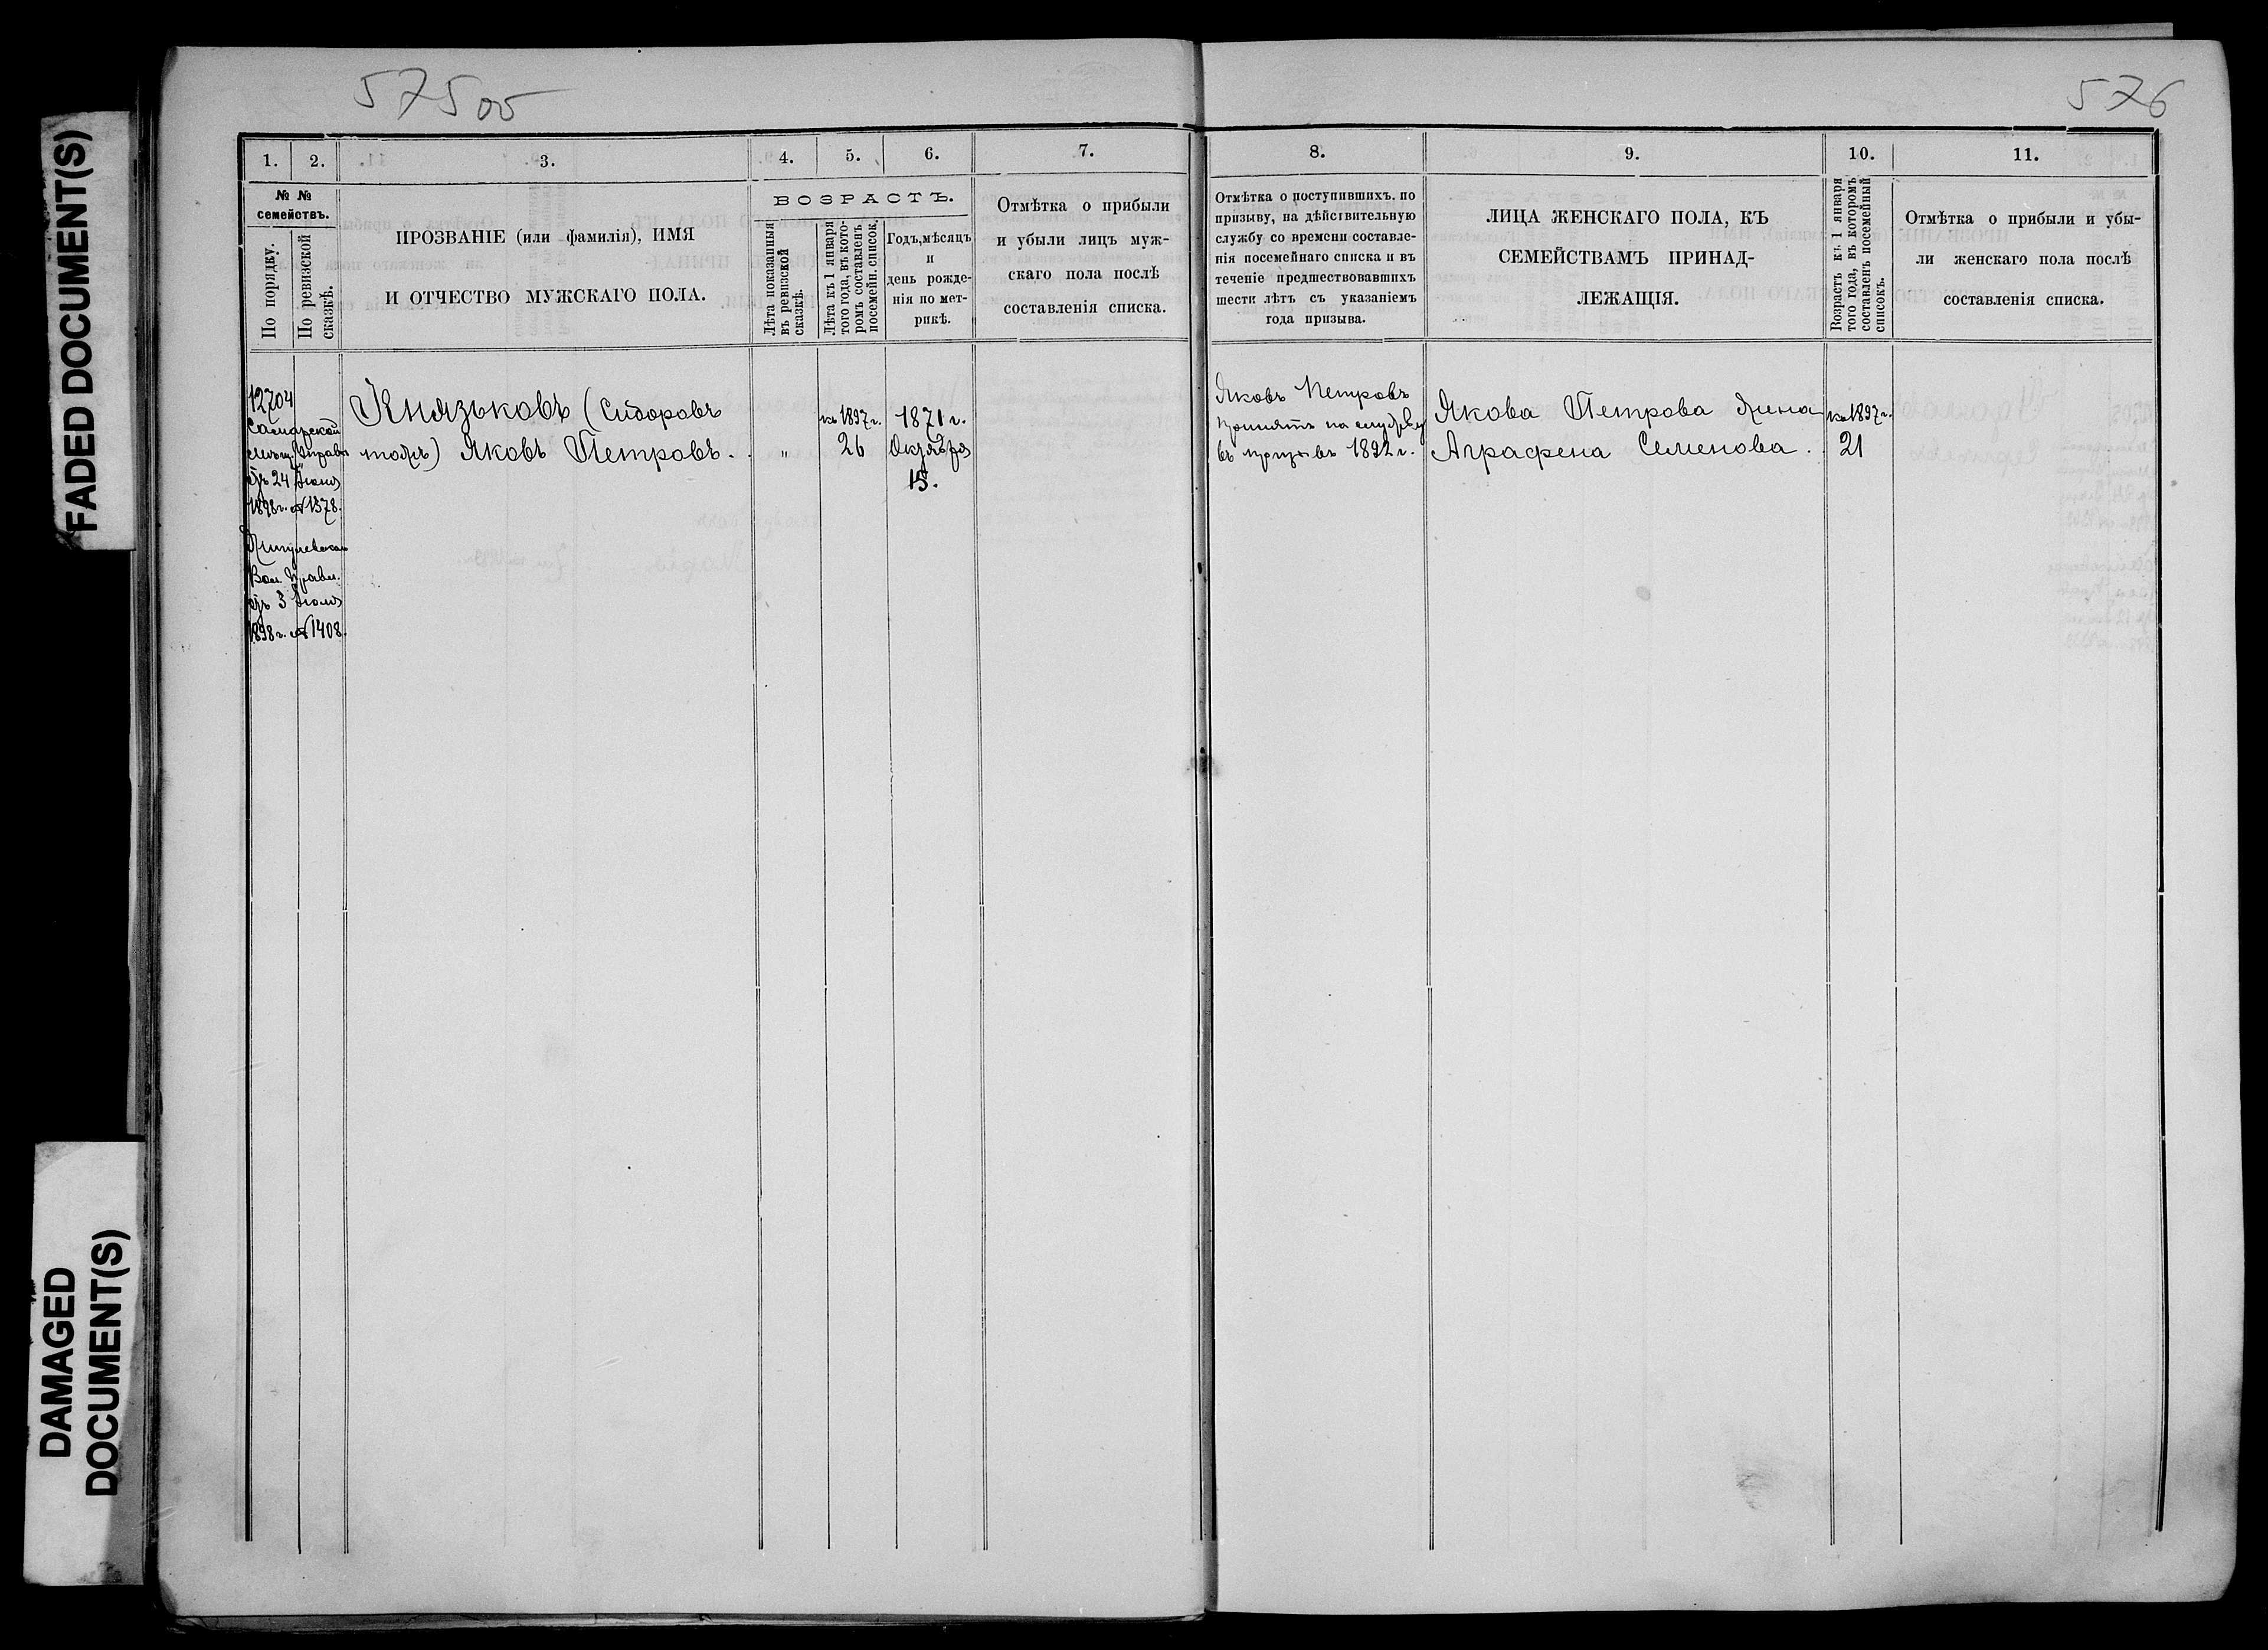 FADED DOCUMENT(S)
DAMAGED
DOCUMENT(S)
575об
576
1.
2.
3.
4.
5.
6.
7.
№ №
семействъ.
По порядку.
По ревизской
сказкѣ.
ПРОЗВАНІЕ (или фамилія), ИМЯ
И ОТЧЕСТВО МУЖСКАГО ПОЛА.
ВОЗРАСТЪ.
Лѣта показанныя
въ ревизской
сказкѣ.
Лѣта къ 1 января
того года, въ кото-
ромъ составленъ
посемейн. список.
Годъ, мѣсяцъ
и
день рожде-
нія по мет-
рикѣ.
Отмѣтка о прибыли
и убыли лицъ муж-
скаго пола послѣ
составленія списка.
12704
Самарской
мѣщ. Управы
отъ 24 Іюня
1898 г. № 1378.
Жигулевскаго
Вол. Правл.
отъ 3 Іюля
1898 г. № 1408.
Князьковъ (Сидоровъ
тожъ) Яковъ Петровъ.
"
къ 1897 г.
26
1871 г.
Октября
15.
8.
9.
10.
11.
Отмѣтка о поступившихъ. по
призыву, на дѣйствительную
службу со времени составле-
нія посемейнаго списка и въ
теченіе предшествовавшихъ
шести лѣтъ съ указаніемъ
года призыва.
ЛИЦА ЖЕНСКАГО ПОЛА, КЪ
СЕМЕЙСТВАМЪ ПРИНАД-
ЛЕЖАЩІЯ.
Возрастъ къ 1 января
того года, въ которомъ
составленъ посемейный
списокъ.
Отмѣтка о прибыли и убы-
ли женскаго пола послѣ
составленія списка.
Яковъ Петровъ
принятъ на службу
въ призывъ 1892 г.
Якова Петрова жена
Аграфена Семенова.
къ 1897 г.
21